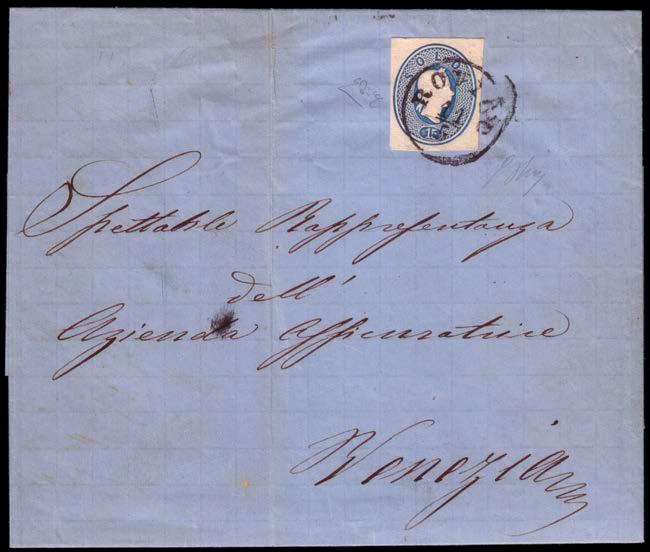 SOLDI
15
Spettabile Rappresentanza
dell'
Azienda Assicuratrice
Venezia